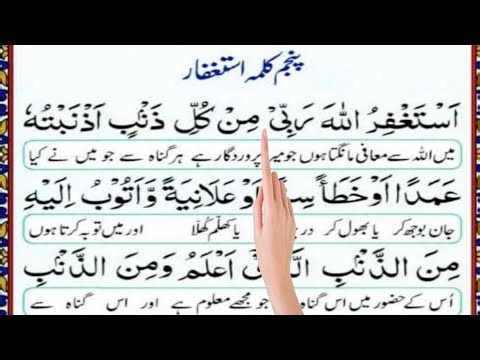 پنجم کلمہ استغفار
اَسْتَغْفِرُ اللهَ رَبِّیْ مِنْ كُلِّ ذَنْۢبٍ اَذْنَبْتُهٗ
میں اللہ سے معافی مانگتا ہوں جو پروردگار ہے ہر گناہ سے جو میں نے کیا
عَمَدًا اَوْ خَطَأً اَوْ عَلَانِيَةً وَّاَتُوْبُ اِلَيْهِ
جان بوجھ کر یا بھول کر یا کھلّم کھلّا اور میں توبہ کرتا ہوں
مِنَ الذَّنْۢبِ اَعْلَمُ وَمِنَ الذَّنْۢبِ
اُس کے حضور میں اس گناہ جو مجھے معلوم ہے اور اس گناہ سے